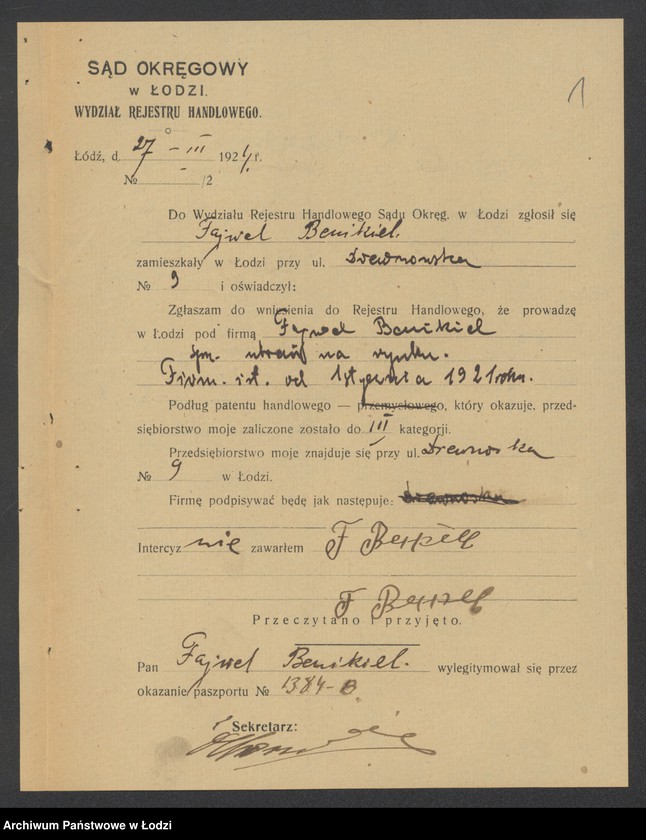 1
SĄD OKRĘGOWY
w ŁODZI.
WYDZIAŁ REJESTRU HANDLOWEGO.
Łódź, d. 27 – III 1924 r.
№ /2
Do Wydziału Rejestru Handlowego Sądu Okręg. w Łodzi zgłosił się
Fajwel Benikiel.
zamieszkały w Łodzi przy ul. Drewnowska
№ 9 i oświadczył:
Zgłaszam do wniesienia do Rejestru Handlowego, że prowadzę
w Łodzi pod firmą Fajwel Benikiel
spr. ubrań na rynku.
Firm. ist. od 1 stycznia 1921 roku.
Podług patentu handlowego — przemysłowego, który okazuje, przed-
siębiorstwo moje zaliczone zostało do III kategorji.
Przedsiębiorstwo moje znajduje się przy ul. Drewnoska
№ 9 w Łodzi.
Firmę podpisywać będę jak następuje:
Intercyz nie zawarłem F
F
Przeczytano i przyjęto.
Pan Fajwel Benikiel. wylegitymował się przez
okazanie paszportu № 1384-
Sekretarz:
Archiwum Państwowe w Łodzi